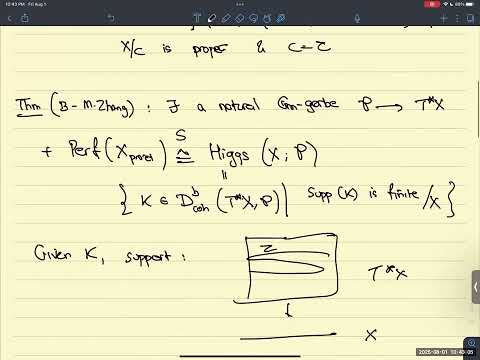 10:43 PM Fri Aug 1
X/C is proper & C=ℂ
Thm (B-M.Zhang) : ∃ a natural Gm-gerbe P → T*X
+ Perf(X_proet) ≅^S Higgs (X; P)
=
{ K ∈ D^b_coh (T*X, P) | Supp (K) is finite /X }
Given K, support :
Z
T*X
X
2025-08-01 10:43:05